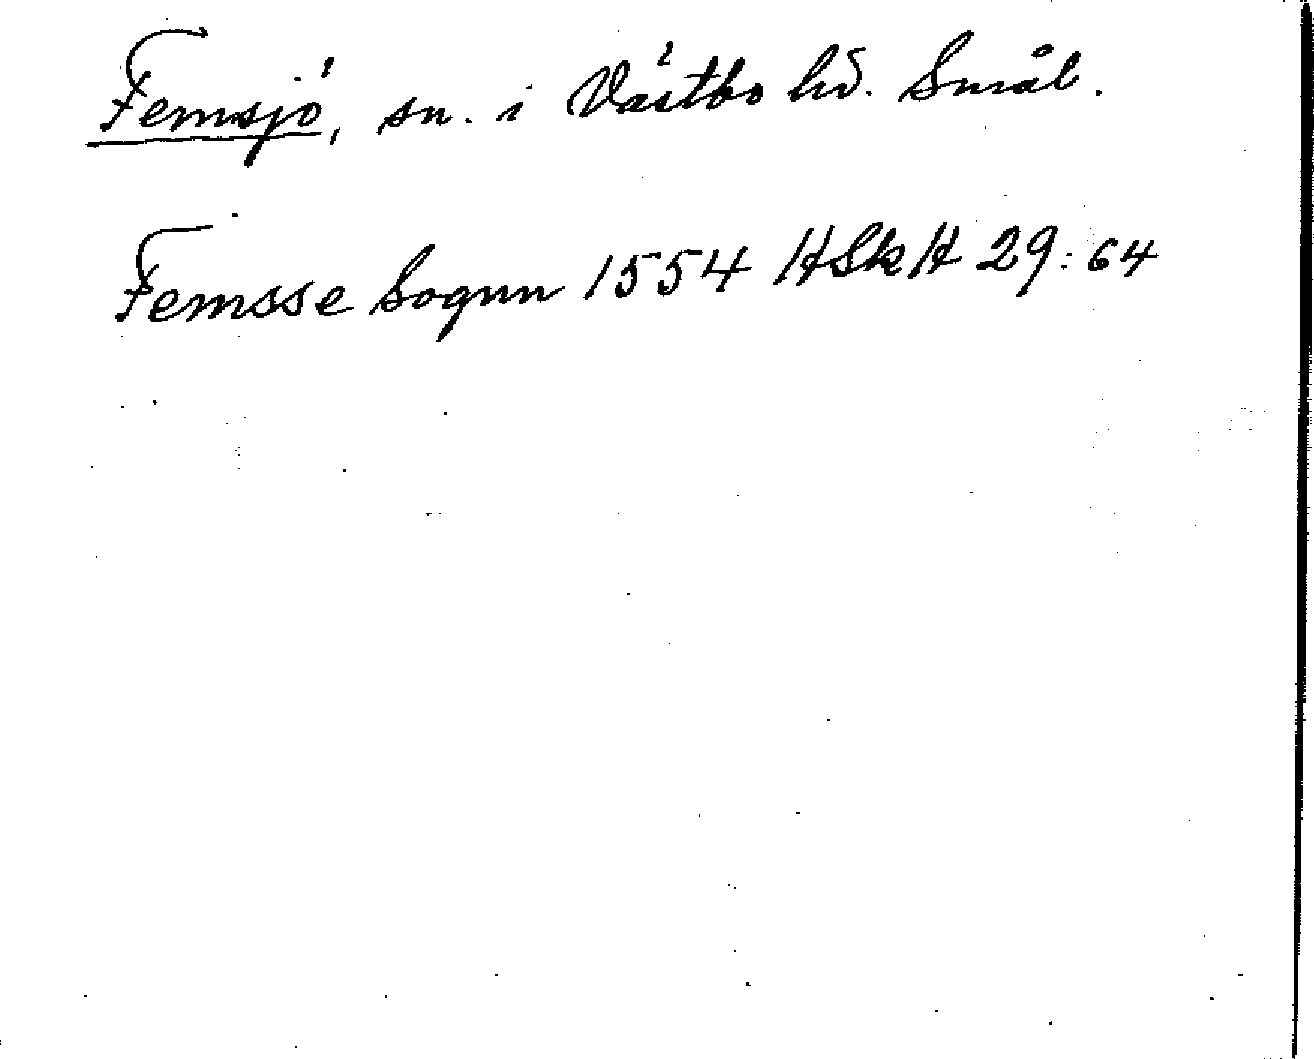 Femsjö, sn. i Västbo hd. Smål.
Femsse Sognn 1554 HSkH 29:64